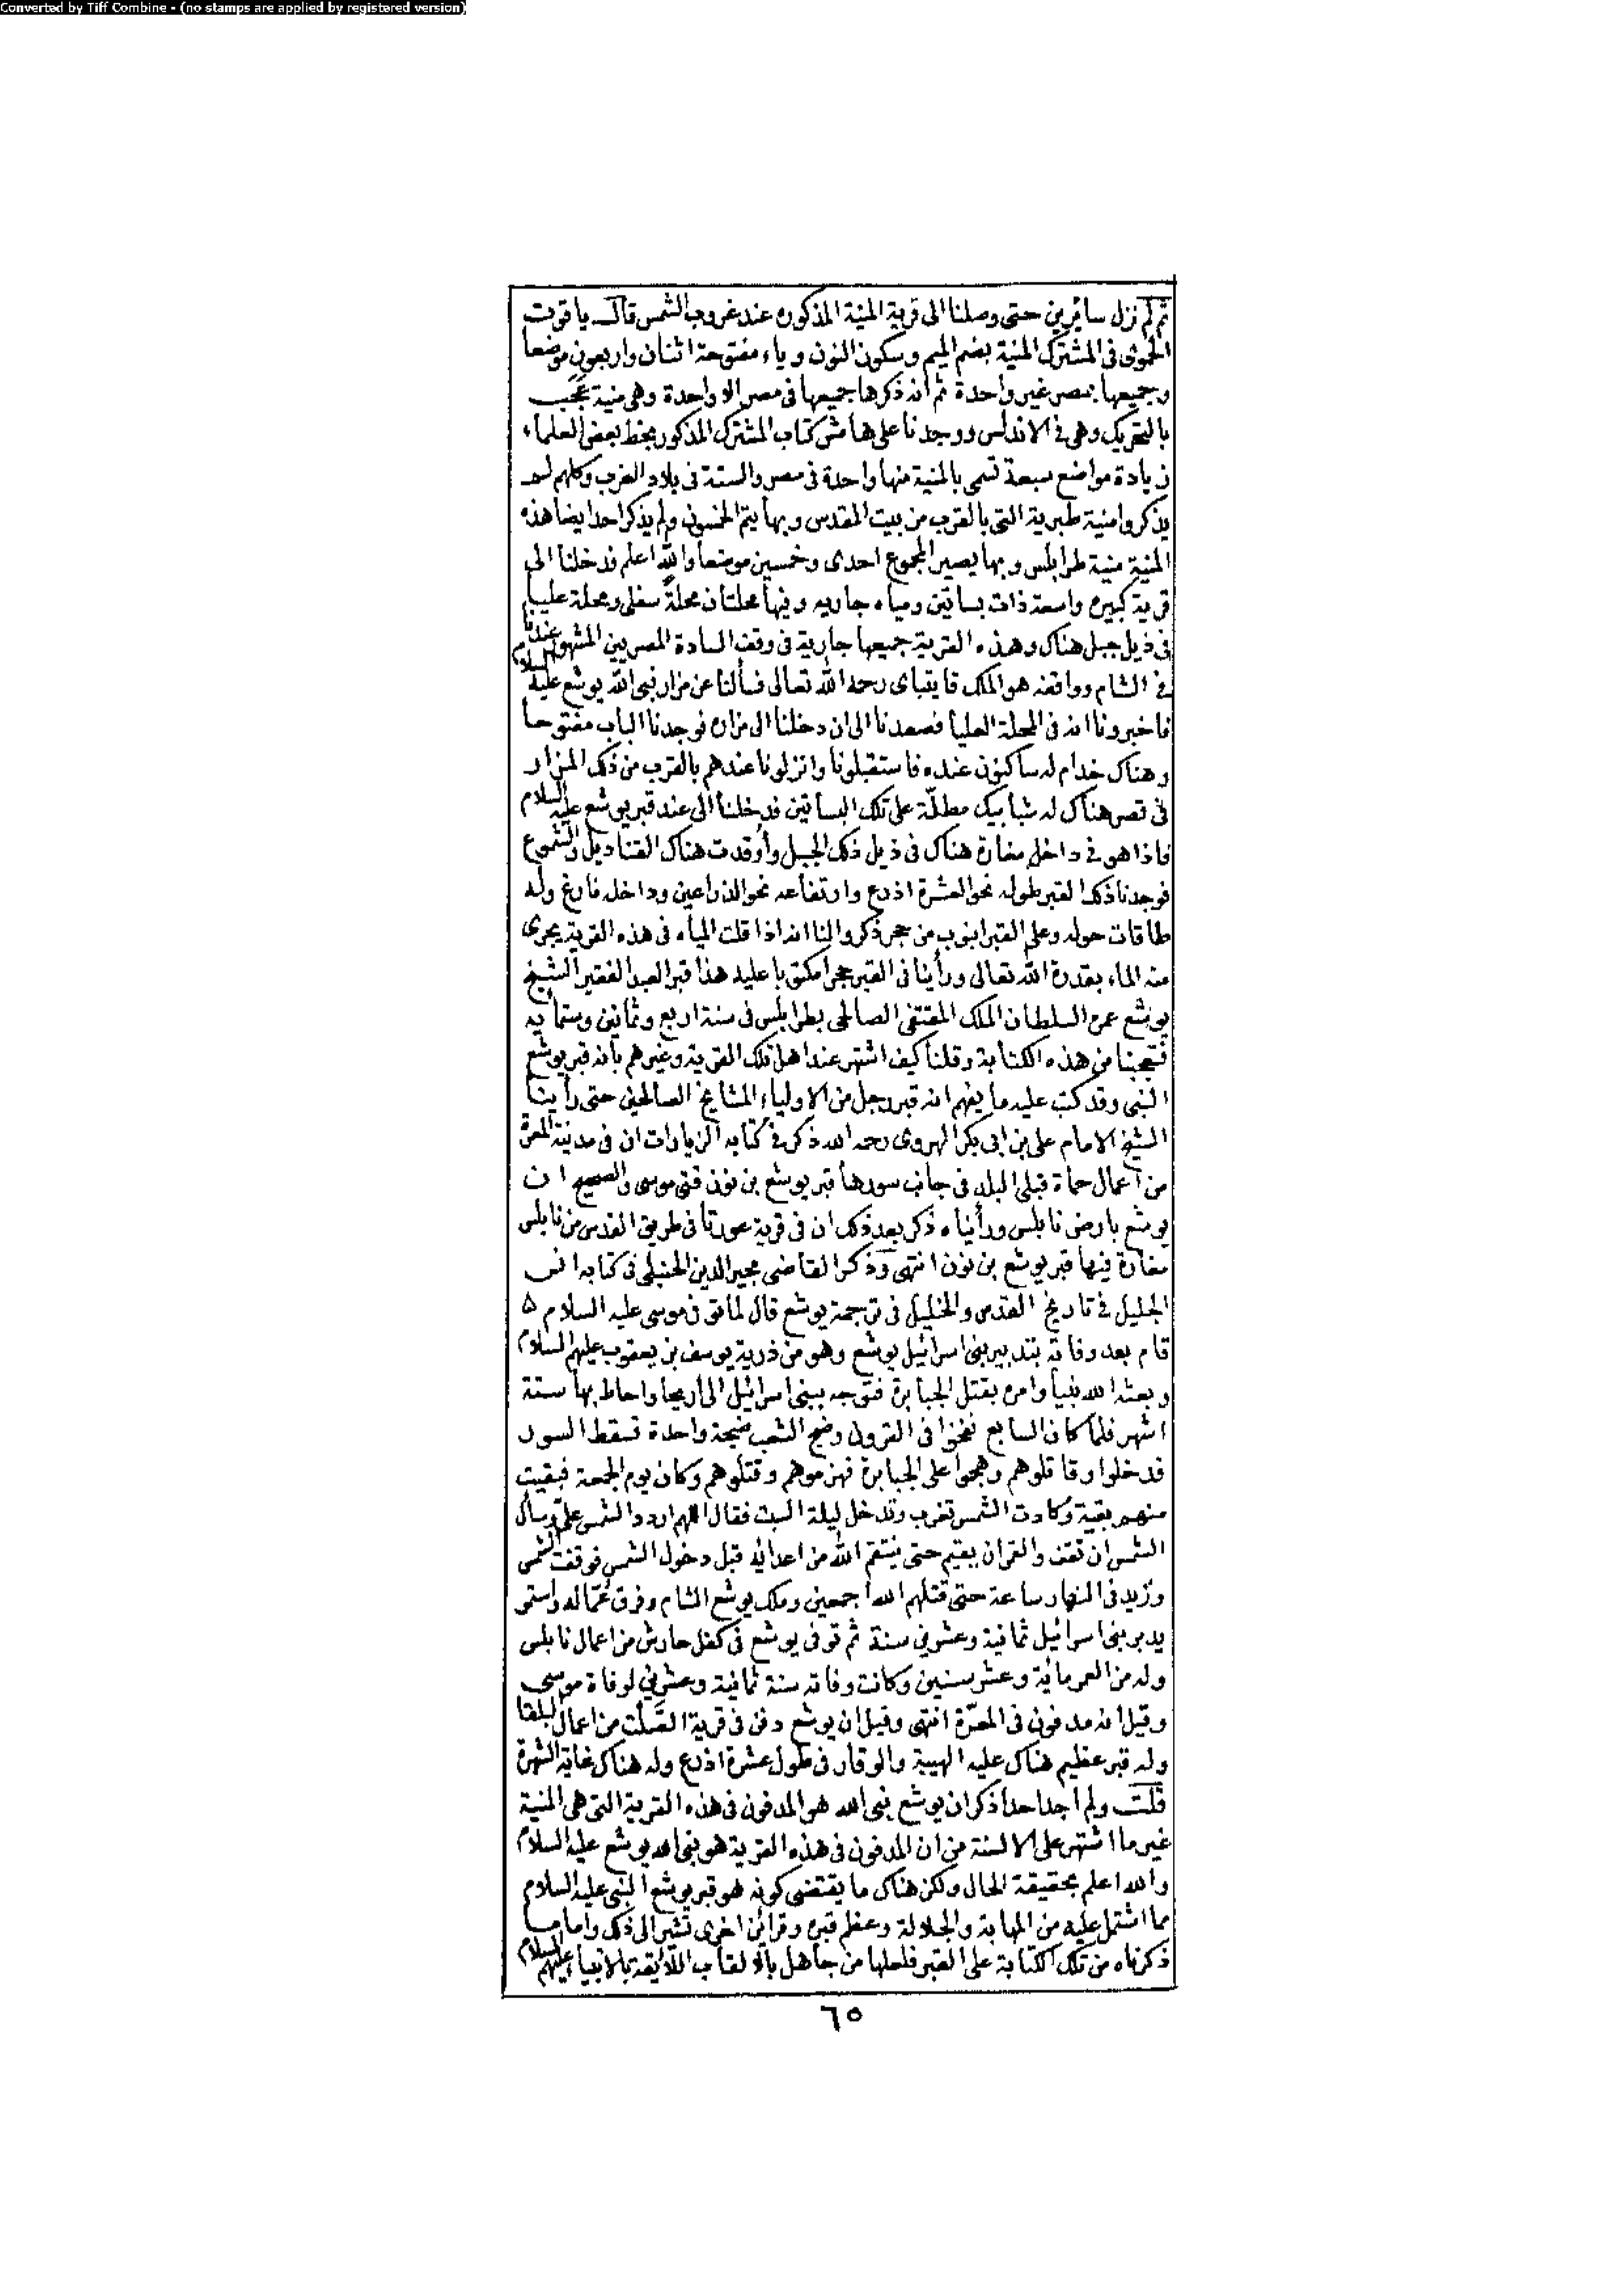 Converted by Tiff Combine - (no stamps are applied by registered version)
ثم لم نزل سائرين حتى وصلنا الى قرية المنية المذكوره عند غروب الشمس قال ياقوت
الحموى فى المشترك المنية بضم الميم وسكون النون وياء مفتوحة اثنان واربعون موضعا
وجميعها بمصر غير واحدة ثم انه ذكرها جميعها فى مصر الا واحدة وهى منية عَجَب
بالتحريك وهى فى الاندلس ووجدنا على هامش كتاب المشترك المذكور بخط بعض العلماء
زيادة مواضع سبعة تسمى بالمنية منها واحدة فى مصر والستة فى بلاد الغرب وكلهم لم
يذكروا منية طبرية التى بالقرب من بيت المقدس وبها يتم الخمسون ولم يذكر احد ايضا هذه
المنية منية طرابلس وبها يصير المجموع احدى وخمسين موضعا والله اعلم فدخلنا الى
قرية كبيره واسعة ذات بساتين ومياه جاريه وفيها محلتان محلة سفلى ومحلة عليا
فى ذيل جبل هناك وهذه القرية جميعها جارية فى وقف السادة المصريين المشهور عندنا
فى الشام وواقفه هو الملك قايتباى رحمه الله تعالى فسألنا عن مزار نبى الله يوشع عليه السلام
فاخبرونا انه فى المحلة العليا فصعدنا الى ان دخلنا الى مزاره فوجدنا الباب مفتوحا
وهناك خدام له ساكنون عنده فاستقبلونا وانزلونا عندهم بالقرب من ذلك المزار
فى قصر هناك له شبابيك مطلّة على تلك البساتين فدخلنا الى عند قبر يوشع عليه السلام
فاذا هو فى داخل مغارة هناك فى ذيل ذلك الجبل وأوقدت هناك القناديل والشموع
فوجدنا ذلك القبر طوله نحو العشرة اذرع وارتفاعه نحو الذراعين وداخله فارغ وله
طاقات حوله وعلى القبر انبوب من حجر ذكروا لنا انه اذا قلت المياه فى هذه القرية يجرى
منه الماء بقدرة الله تعالى ورأينا فى القبر حجرا مكتوبا عليه هذا قبر العبد الفقير الشيخ
يوشع عمره السلطان الملك المقتفى الصالحى بطرابلس فى سنة اربع وثمانين وستمايه
فتعجبنا من هذه الكتابة وقلنا كيف اشتهر عند اهل تلك القرية وغيرهم بانه قبر يوشع
النبى وقد كتب عليه ما يفهم انه قبر رجل من الاولياء المشايخ الصالحين حتى رأينا
الشيخ الامام على بن ابى بكر الهروى رحمه الله ذكر فى كتابه الزيارات ان فى مدينة المعرة
من أعمال حماة قبلى البلد فى جانب سورها قبر يوشع بن نون فتى موسى والصحيح ان
يوشع بارض نابلس ورأيناه ذكر بعد ذلك ان فى قرية عورتا فى طريق القدس من نابلس
مغارة فيها قبر يوشع بن نون انتهى وذكر القاضى مجير الدين الحنبلى فى كتابه انس
الجليل فى تاريخ القدس والخليل فى ترجمة يوشع قال لما توفى موسى عليه السلام
قام بعد وفاته بتدبير بنى اسرائيل يوشع وهو من ذرية يوسف بن يعقوب عليهم السلام
وبعثه الله نبيا وامره بقتل الجبابرة فتوجه ببنى اسرائيل الى اريحا واحاط بها ستة
اشهر فلما كان السابع نفخوا فى القرون وضج الشعب ضجة واحدة فسقط السور
فدخلوا وقاتلوهم وهجموا على الجبابرة فهزموهم وقتلوهم وكان يوم الجمعة فبقيت
منهم بقية وكادت الشمس تغرب وتدخل ليلة السبت فقال اللهم اردد الشمس علىّ وسأل
الشمس ان تقف والقمر ان يقيم حتى ينتقم الله من اعدائه قبل دخول الشمس فوقفت الشمس
وزيد فى النهار ساعة حتى قتلهم الله اجمعين وملك يوشع الشام وفرق عمّاله واستمر
يدبر بنى اسرائيل ثمانية وعشرين سنة ثم توفى يوشع فى كفل حارش من اعمال نابلس
وله من العمر مائية وعشر سنين وكانت وفاته سنة ثمانية وعشرين لوفاة موسى
وقيل انه مدفون فى المعرّة انتهى وقيل ان يوشع دفن فى قرية الصَّلت من اعمال البلقا
وله قبر عظيم هناك عليه الهيبة والوقار فى طول عشرة اذرع وله هناك غاية الشهرة
قلت ولم اجد احدا ذكر ان يوشع نبى الله هو المدفون فى هذه القرية التى هى المنية
غير ما اشتهر على الالسنة من ان المدفون فى هذه القرية هو نبى الله يوشع عليه السلام
والله اعلم بحقيقة الحال ولكن هناك ما يقتضى كونه هو قبر يوشع النبى عليه السلام
مما اشتمل عليه من المهابة والجلالة وعظم قبره وقرائن اخرى تشير الى ذلك واما ما
ذكرناه من تلك الكتابة على القبر فلعلها من جاهل بالالقاب اللائقة بالانبياء عليهم السلام
٦٥